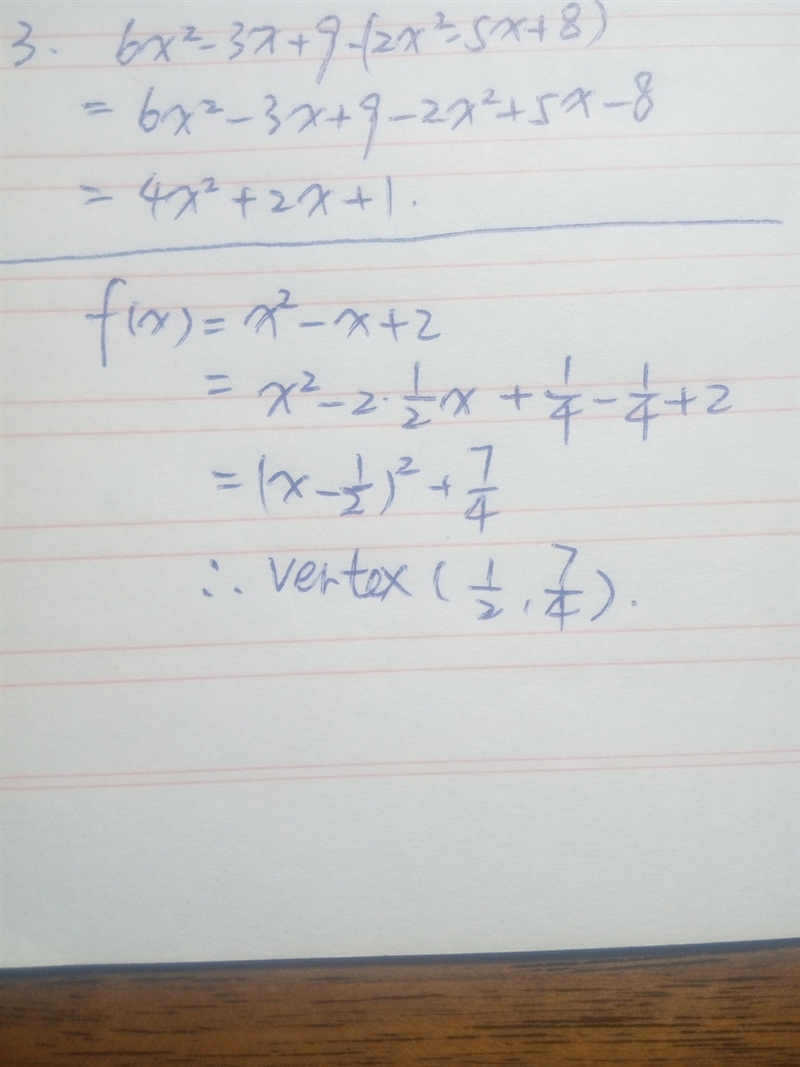 3. 6x²-3x+9-(2x²-5x+8)
= 6x²-3x+9-2x²+5x-8
= 4x²+2x+1.
f(x)= x²-x+2
= x²-2·1/2x+1/4-1/4+2
=(x-1/2)²+7/4
∴ vertex (1/2, 7/4).